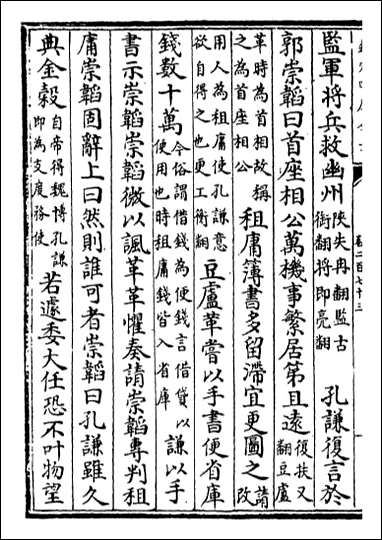 卷二百七十三
監軍將兵救幽州陜失冉翻監古銜翻將即亮翻孔謙復言於
郭崇韜曰首座相公萬機事繁居第且遠復扶又翻豆盧
革時為首相故稱之為首座相公租庸簿書多留滯宜更圖之請改
用人為租庸使孔謙意欲自得之也更工衡翻豆盧革嘗以手書便省庫
錢數十萬今俗謂借錢為便錢言借貸以便使用也時租庸錢皆入省庫謙以手
書示崇韜崇韜微以諷革革懼奏請崇韜專判租
庸崇韜固辭上曰然則誰可者崇韜曰孔謙雖久
典金榖自帝得魏博孔謙即為支度務使若遽委大任恐不叶物望